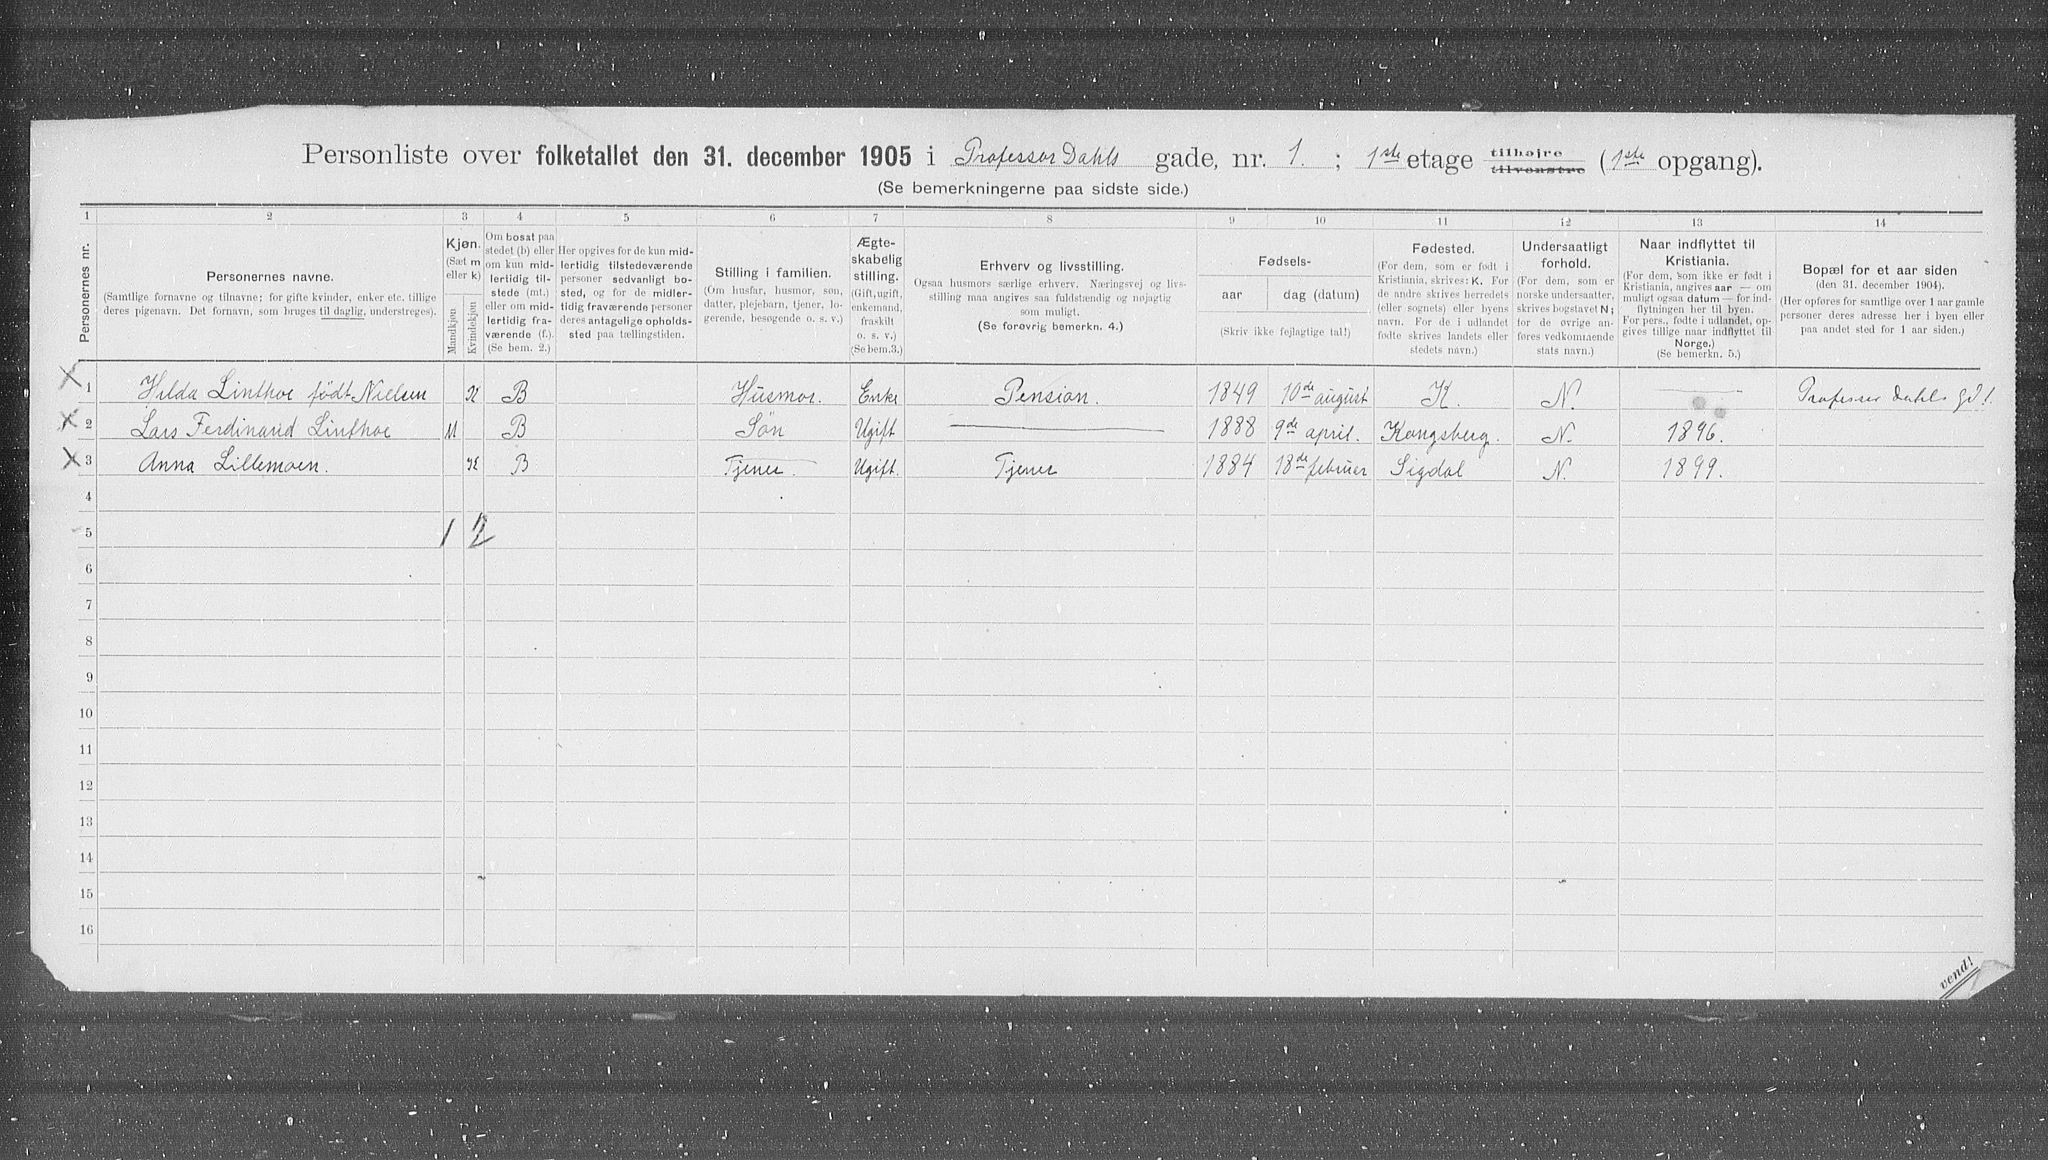 Personliste over folketallet den 31. december 1905 i Professor Dahls gade, nr. 1. ; 1ste etage tilhøjre tilvenstre (1ste opgang).
(Se bemerkningerne paa sidste side.)
1 2 3 4 5 6 7 8 9 10 11 12 13 14
Personernes nr.
Personernes navne.
(Samtlige fornavne og tilnavne; for gifte kvinder, enker etc. tillige
deres pigenavn. Det fornavn, som bruges til daglig, understreges).
Kjøn.
(Sæt m
eller k)
Mandkjøn
Kvindekjøn
Om bosat paa
stedet (b) eller
om kun mid-
lertidig til-
stede (mt.)
eller om mid-
lertidig fra-
værende (f.).
(Se bem. 2.)
Her opgives for de kun mid-
lertidig tilstedeværende
personer sedvanligt bo-
sted, og for de midler-
tidig fraværende personer
deres antagelige opholds-
sted paa tællingstiden.
Stilling i familien.
(Om husfar, husmor, søn,
datter, plejebarn, tjener, lo-
gerende, besøgende o. s. v.)
Ægte-
skabelig
stilling.
(Gift, ugift,
enkemand,
fraskilt
o. s. v.)
(Se bem.3.)
Erhverv og livsstilling.
Ogsaa husmors særlige erhverv. Næringsvej og livs-
stilling maa angives saa fuldstændig og nøjagtig
som muligt.
(Se forøvrig bemerkn. 4.)
Fødsels-
aar
dag (datum)
(Skriv ikke fejlagtige tal!)
Fødested.
(For dem, som er født i
Kristiania, skrives: K. For
de andre skrives herredets
(eller sognets) eller byens
navn. For de i udlandet
fødte skrives landets eller
stedets navn.)
Undersaatligt
forhold.
(For dem, som er
norske undersaatter,
skrives bogstavet N;
for de øvrige an-
føres vedkommende
stats navn.)
Naar indflyttet til
Kristiania.
(For dem, som ikke er født i
Kristiania, angives aar — om
muligt ogsaa datum — for ind-
flytningen her til byen.
For pers., fødte i udlandet, op-
gives tillige naar indflyttet til
Norge.)
(Se bemerkn. 5.)
Bopæl for et aar siden
(den 31. december 1904).
(Her opføres for samtlige over 1 aar gamle
personer deres adresse her i byen eller
paa andet sted for 1 aar siden.)
X 1 Hilda Linthoe født Nielsen K B Husmor. Enke Pension. 1849 10de august K. N. — Professor Dahls gd 1.
X 2 Lars Ferdinand Linthoe M B Søn Ugift — 1888 9de april. Kongsberg. N. 1896.
X 3 Anna Lillemoen. K B Tjener. Ugift. Tjener 1884 18de februar Sigdal N. 1899.
4
5 1 2
6
7
8
9
10
11
12
13
14
15
16
vend!